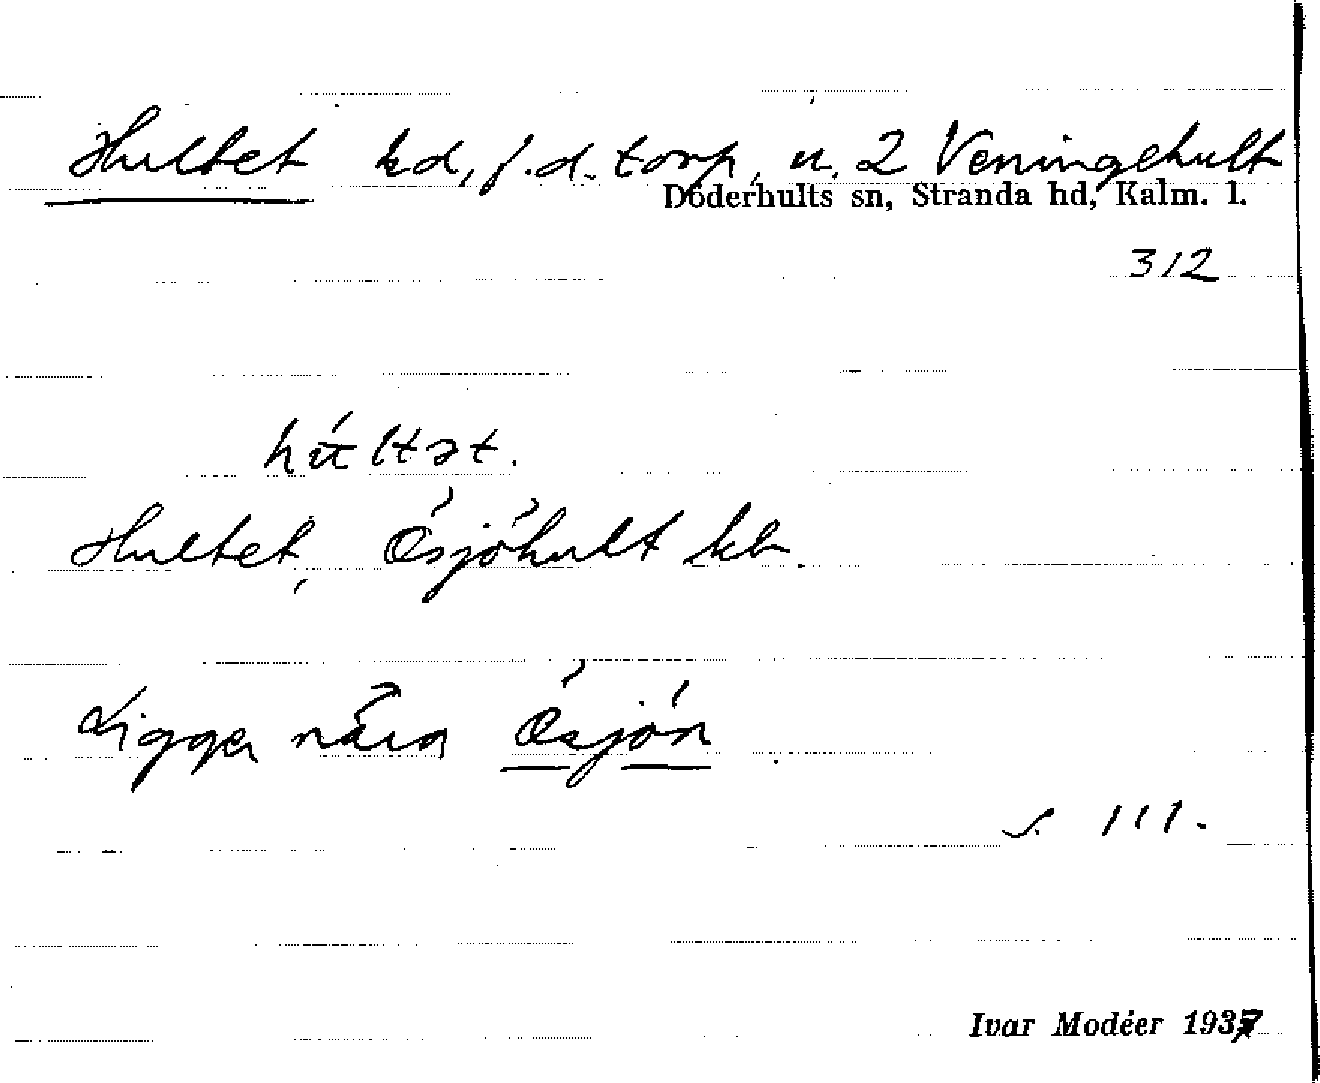 Hultet kd, f.d. torp, u. 2 Veningehult
Döderhults sn, Stranda hd, Kalm. l.
312
hʉ́ltət.
Hultet, Ésjóhult kb.
Ligger nära Ésjón
s. 111.
Ivar Modéer 1937